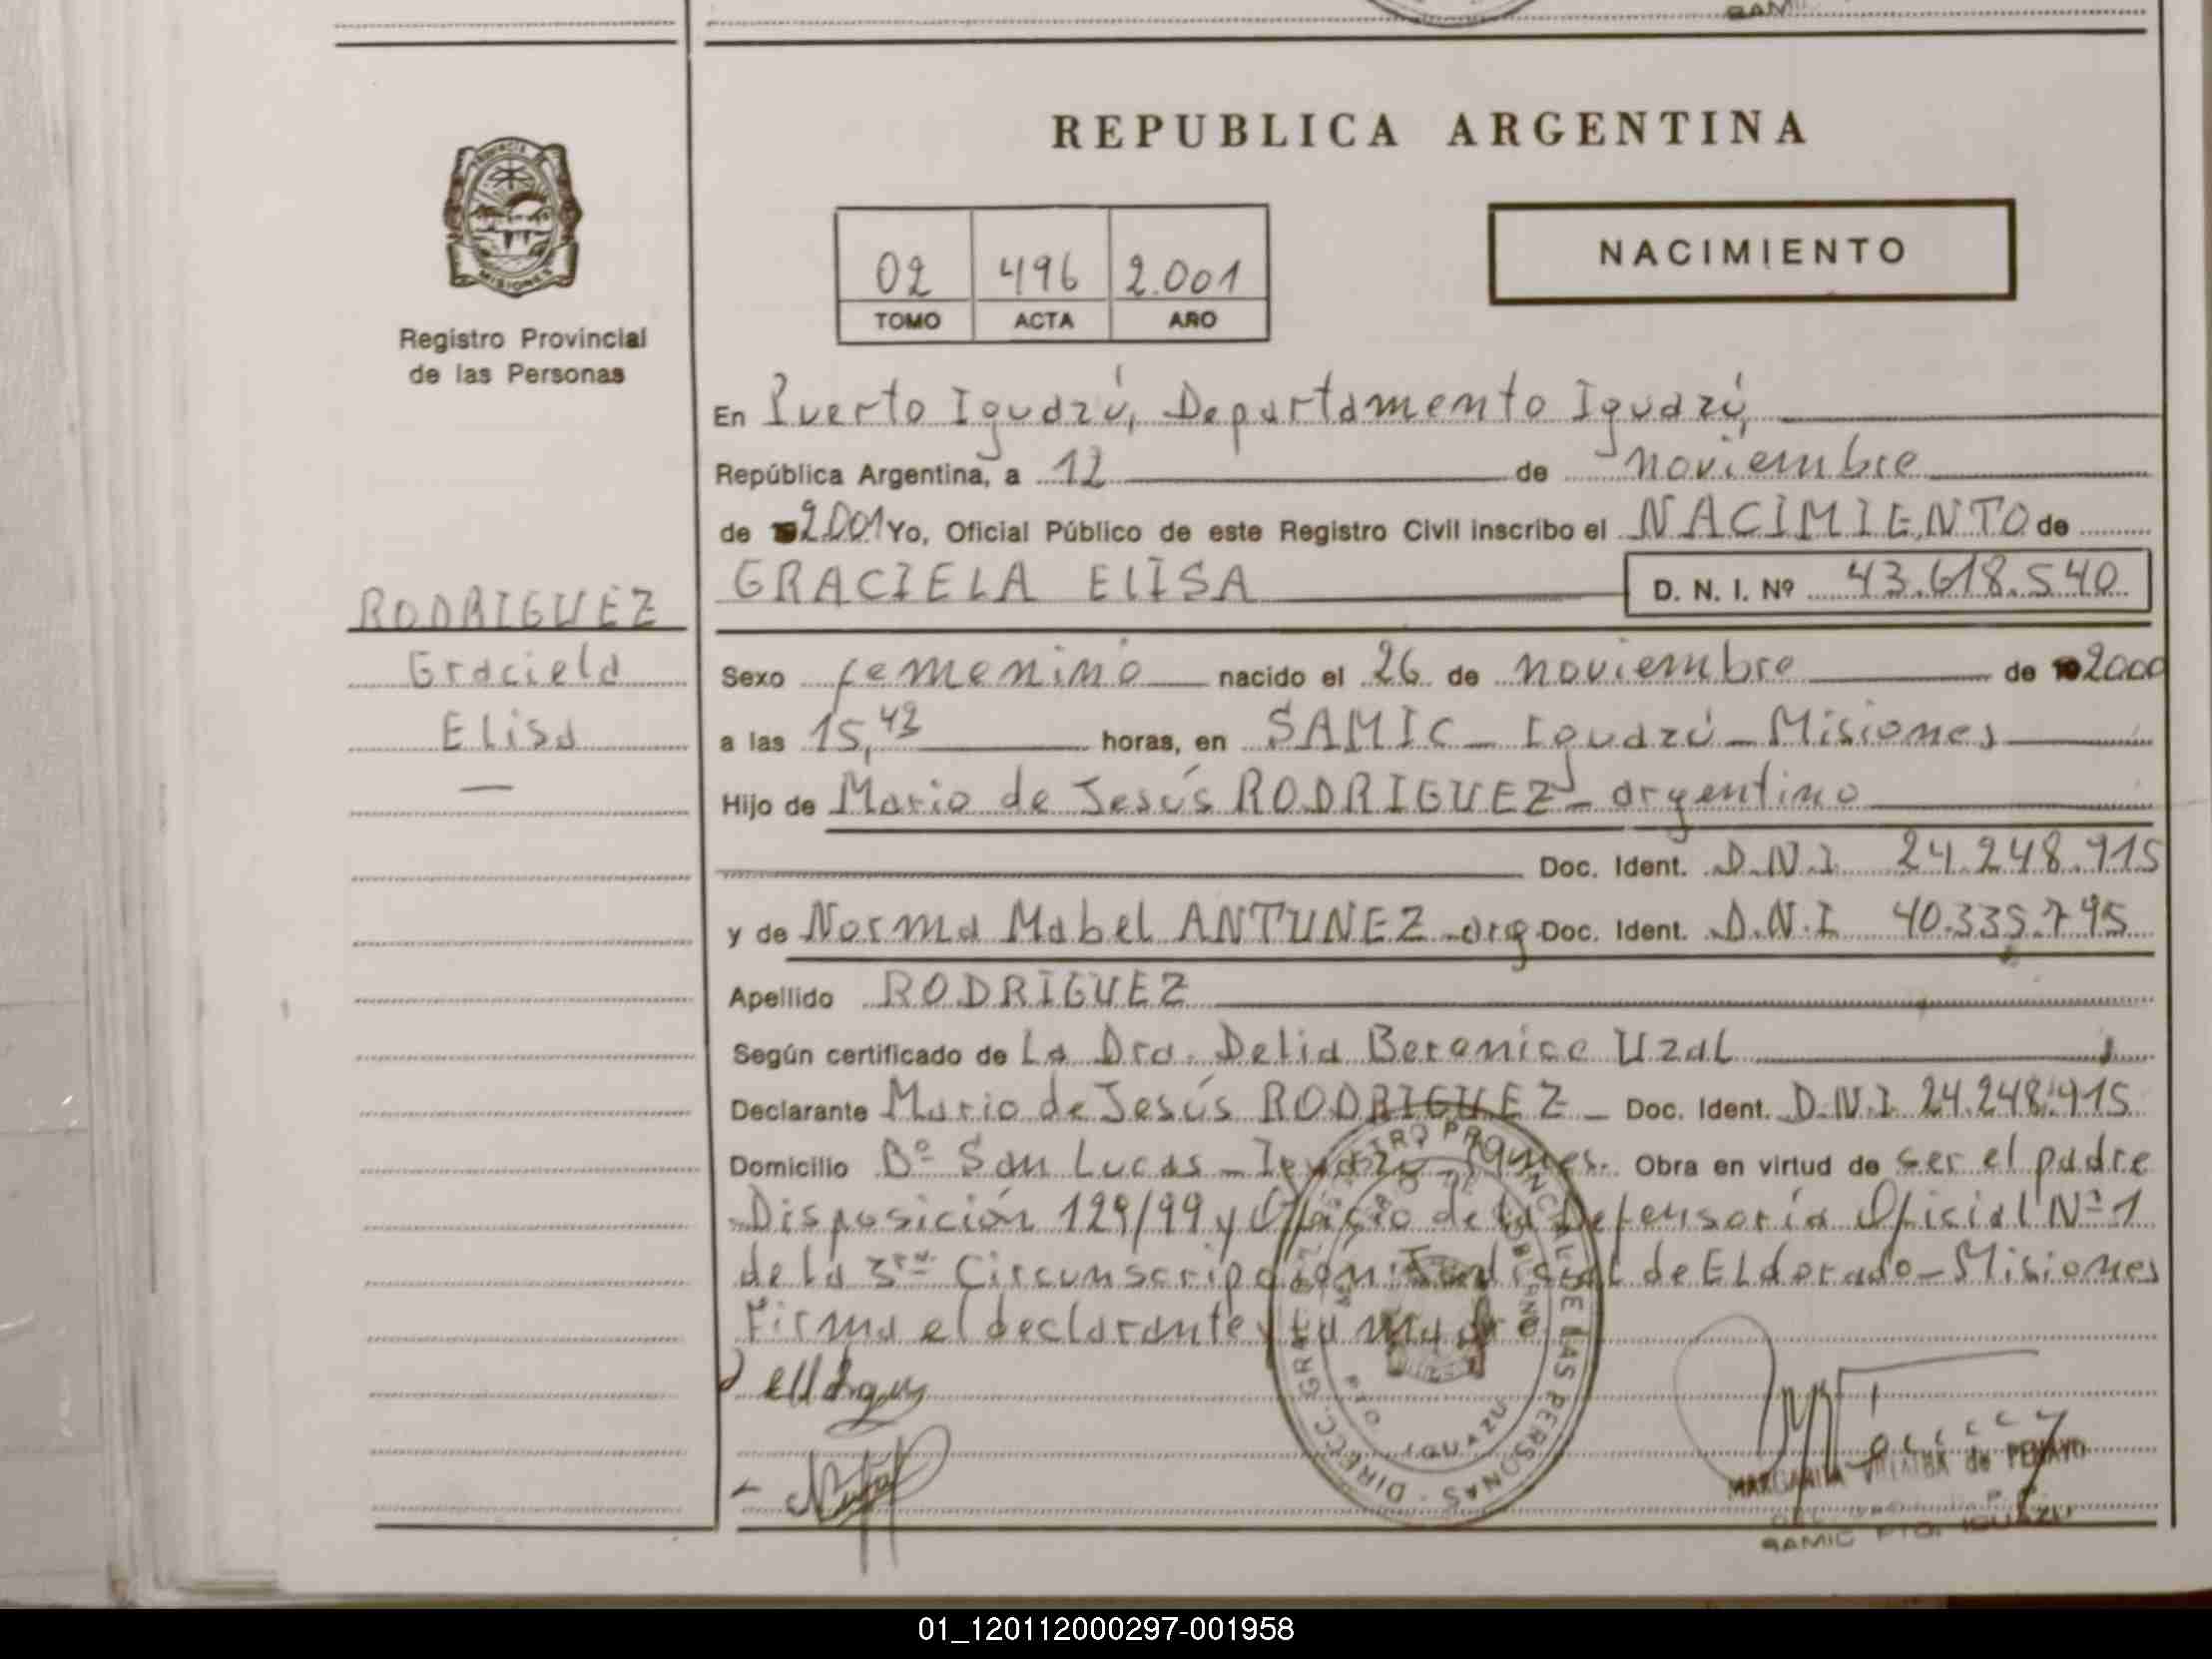 REPUBLICA ARGENTINA
PROVINCIA DE
MISIONES
Registro Provincial
de las Personas
NACIMIENTO
02 496 2.001
TOMO ACTA AÑO
En Puerto Iguazú, Departamento Iguazú,
República Argentina, a 12 de noviembre
de 2.001 Yo, Oficial Público de este Registro Civil inscribo el NACIMIENTO de
GRACIELA ELISA D. N. I. Nº 43.618.540
RODRIGUEZ
Graciela
Elisa
Sexo femenino nacido el 26 de noviembre de 2000
a las 15,43 horas, en SAMIC - Iguazú - Misiones
Hijo de Mario de Jesús RODRIGUEZ - argentino
Doc. Ident. D.N.I 24.248.915
y de Norma Mabel ANTUNEZ - arg Doc. Ident. D.N.I 40.335.795
Apellido RODRIGUEZ
Según certificado de La Dra. Delia Berenice Uzal
Declarante Mario de Jesús RODRIGUEZ - Doc. Ident. D.N.I 24.248.915
Domicilio Bº San Lucas - Iguazú - Obra en virtud de ser el padre
Disposición 129/99 y Oficio de la Defensoría Oficial Nº 1
de la 3ra Circunscripción Judicial de Eldorado - Misiones
Firma el declarante y la madre
DIRECC. GRAL. DEL REGISTRO PROVINCIAL DE LAS PERSONAS
PTO. IGUAZU
MARGARITA VILLALBA de PENAYO
SAMIC PTO. IGUAZU
01_120112000297-001958